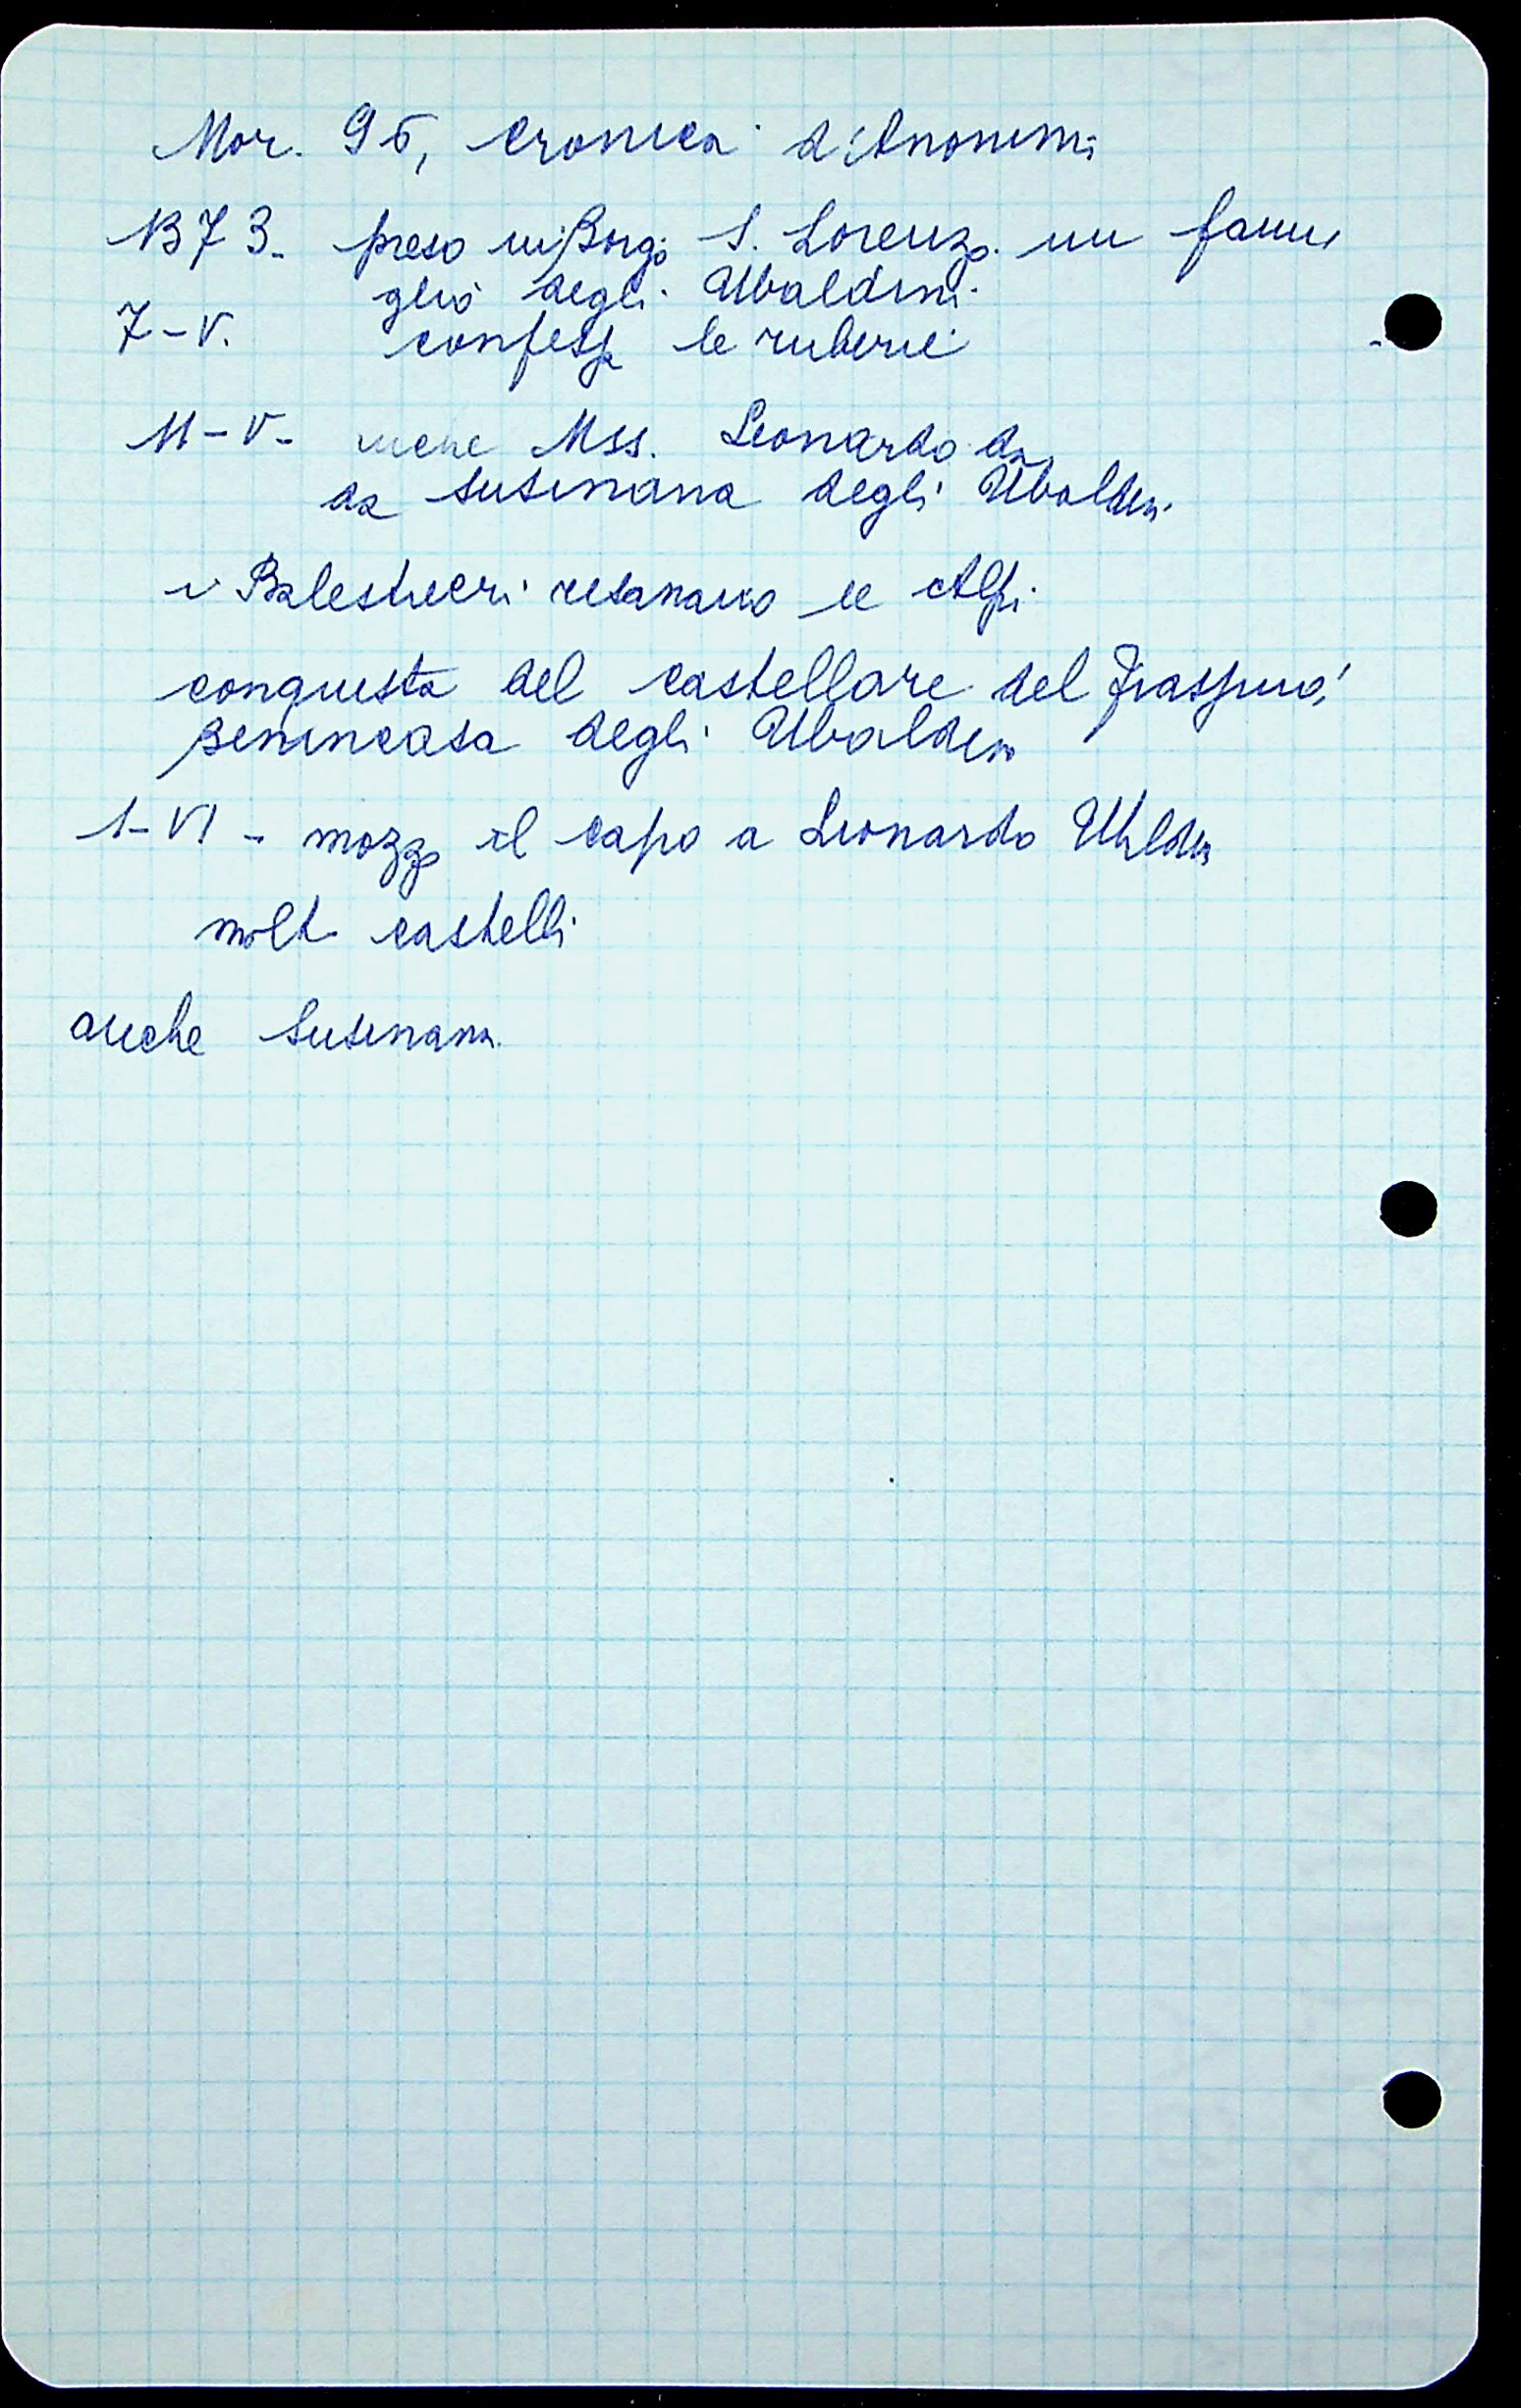 Mor. 95, Cronica d'Anonimi
1373- preso in Borgo S. Lorenzo un fami
glio degli Ubaldini
7-V. confessa le ruberie
11-V- viene Mss. Leonardo da
da Susinana degli Ubaldin.
i Balestrieri le Alpi
conquista del castellare del Frassino,
Benincasa degli Ubaldin
1-VI - mozzo il capo a Leonardo Ubaldin
molt castelli
anche Susinana